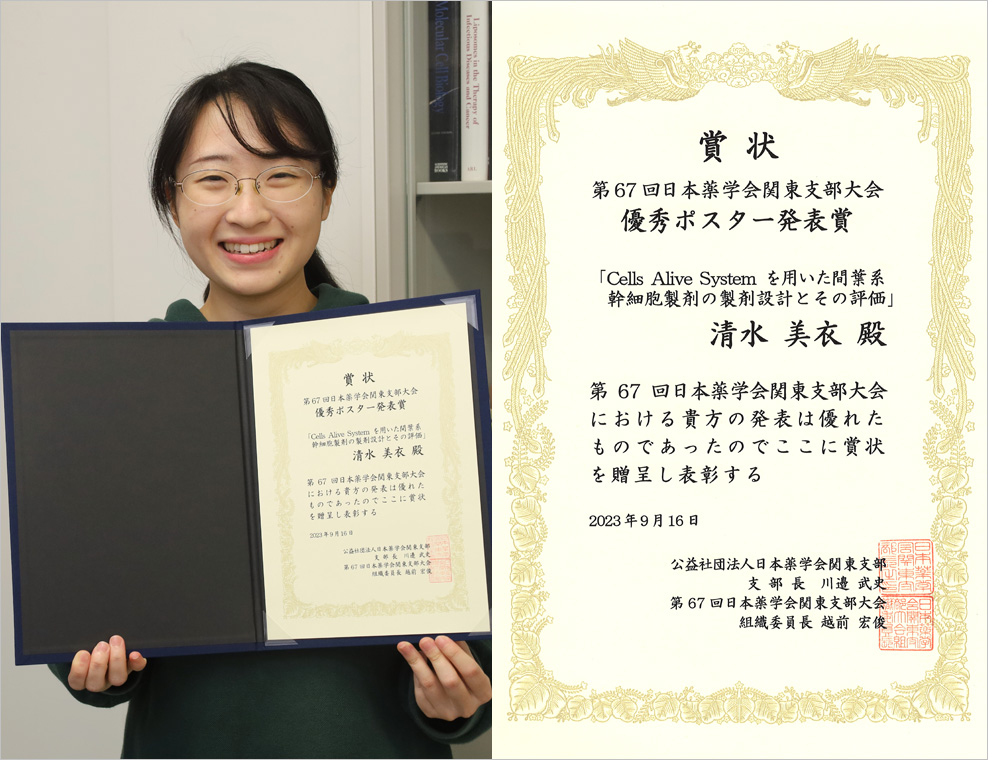 Molecular Cell Biology
Liposomes in the Therapy of
Infectious Diseases and Cancer
賞状
第67回日本薬学会関東支部大会
優秀ポスター発表賞
「Cells Alive System を用いた間葉系
幹細胞製剤の製剤設計とその評価」
清水 美衣 殿
第 67 回日本薬学会関東支部大会
における貴方の発表は優れた
ものであったのでここに賞状
を贈呈し表彰する
2023年9月16日
公益社団法人日本薬学会関東支部
支 部 長 川邉 武史
第67回日本薬学会関東支部大会
組織委員長 越前 宏俊
賞 状
第67回日本薬学会関東支部大会
優秀ポスター発表賞
「Cells Alive System を用いた間葉系
幹細胞製剤の製剤設計とその評価」
清水 美衣 殿
第 67 回日本薬学会関東支部大会
における貴方の発表は優れた
ものであったのでここに賞状
を贈呈し表彰する
2023年9月16日
公益社団法人日本薬学会関東支部
支 部 長 川邉 武史
第67回日本薬学会関東支部大会
組織委員長 越前 宏俊